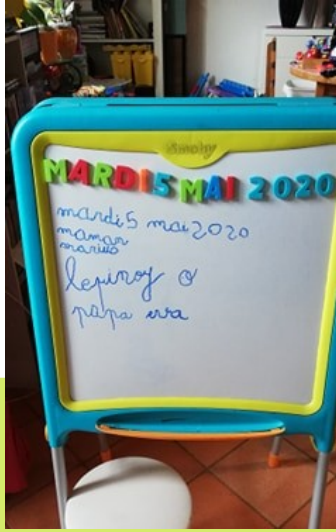 Smoby
MARDI 5 MAI 2020
mardi 5 mai 2020
maman
marius
lepinoy o
papa